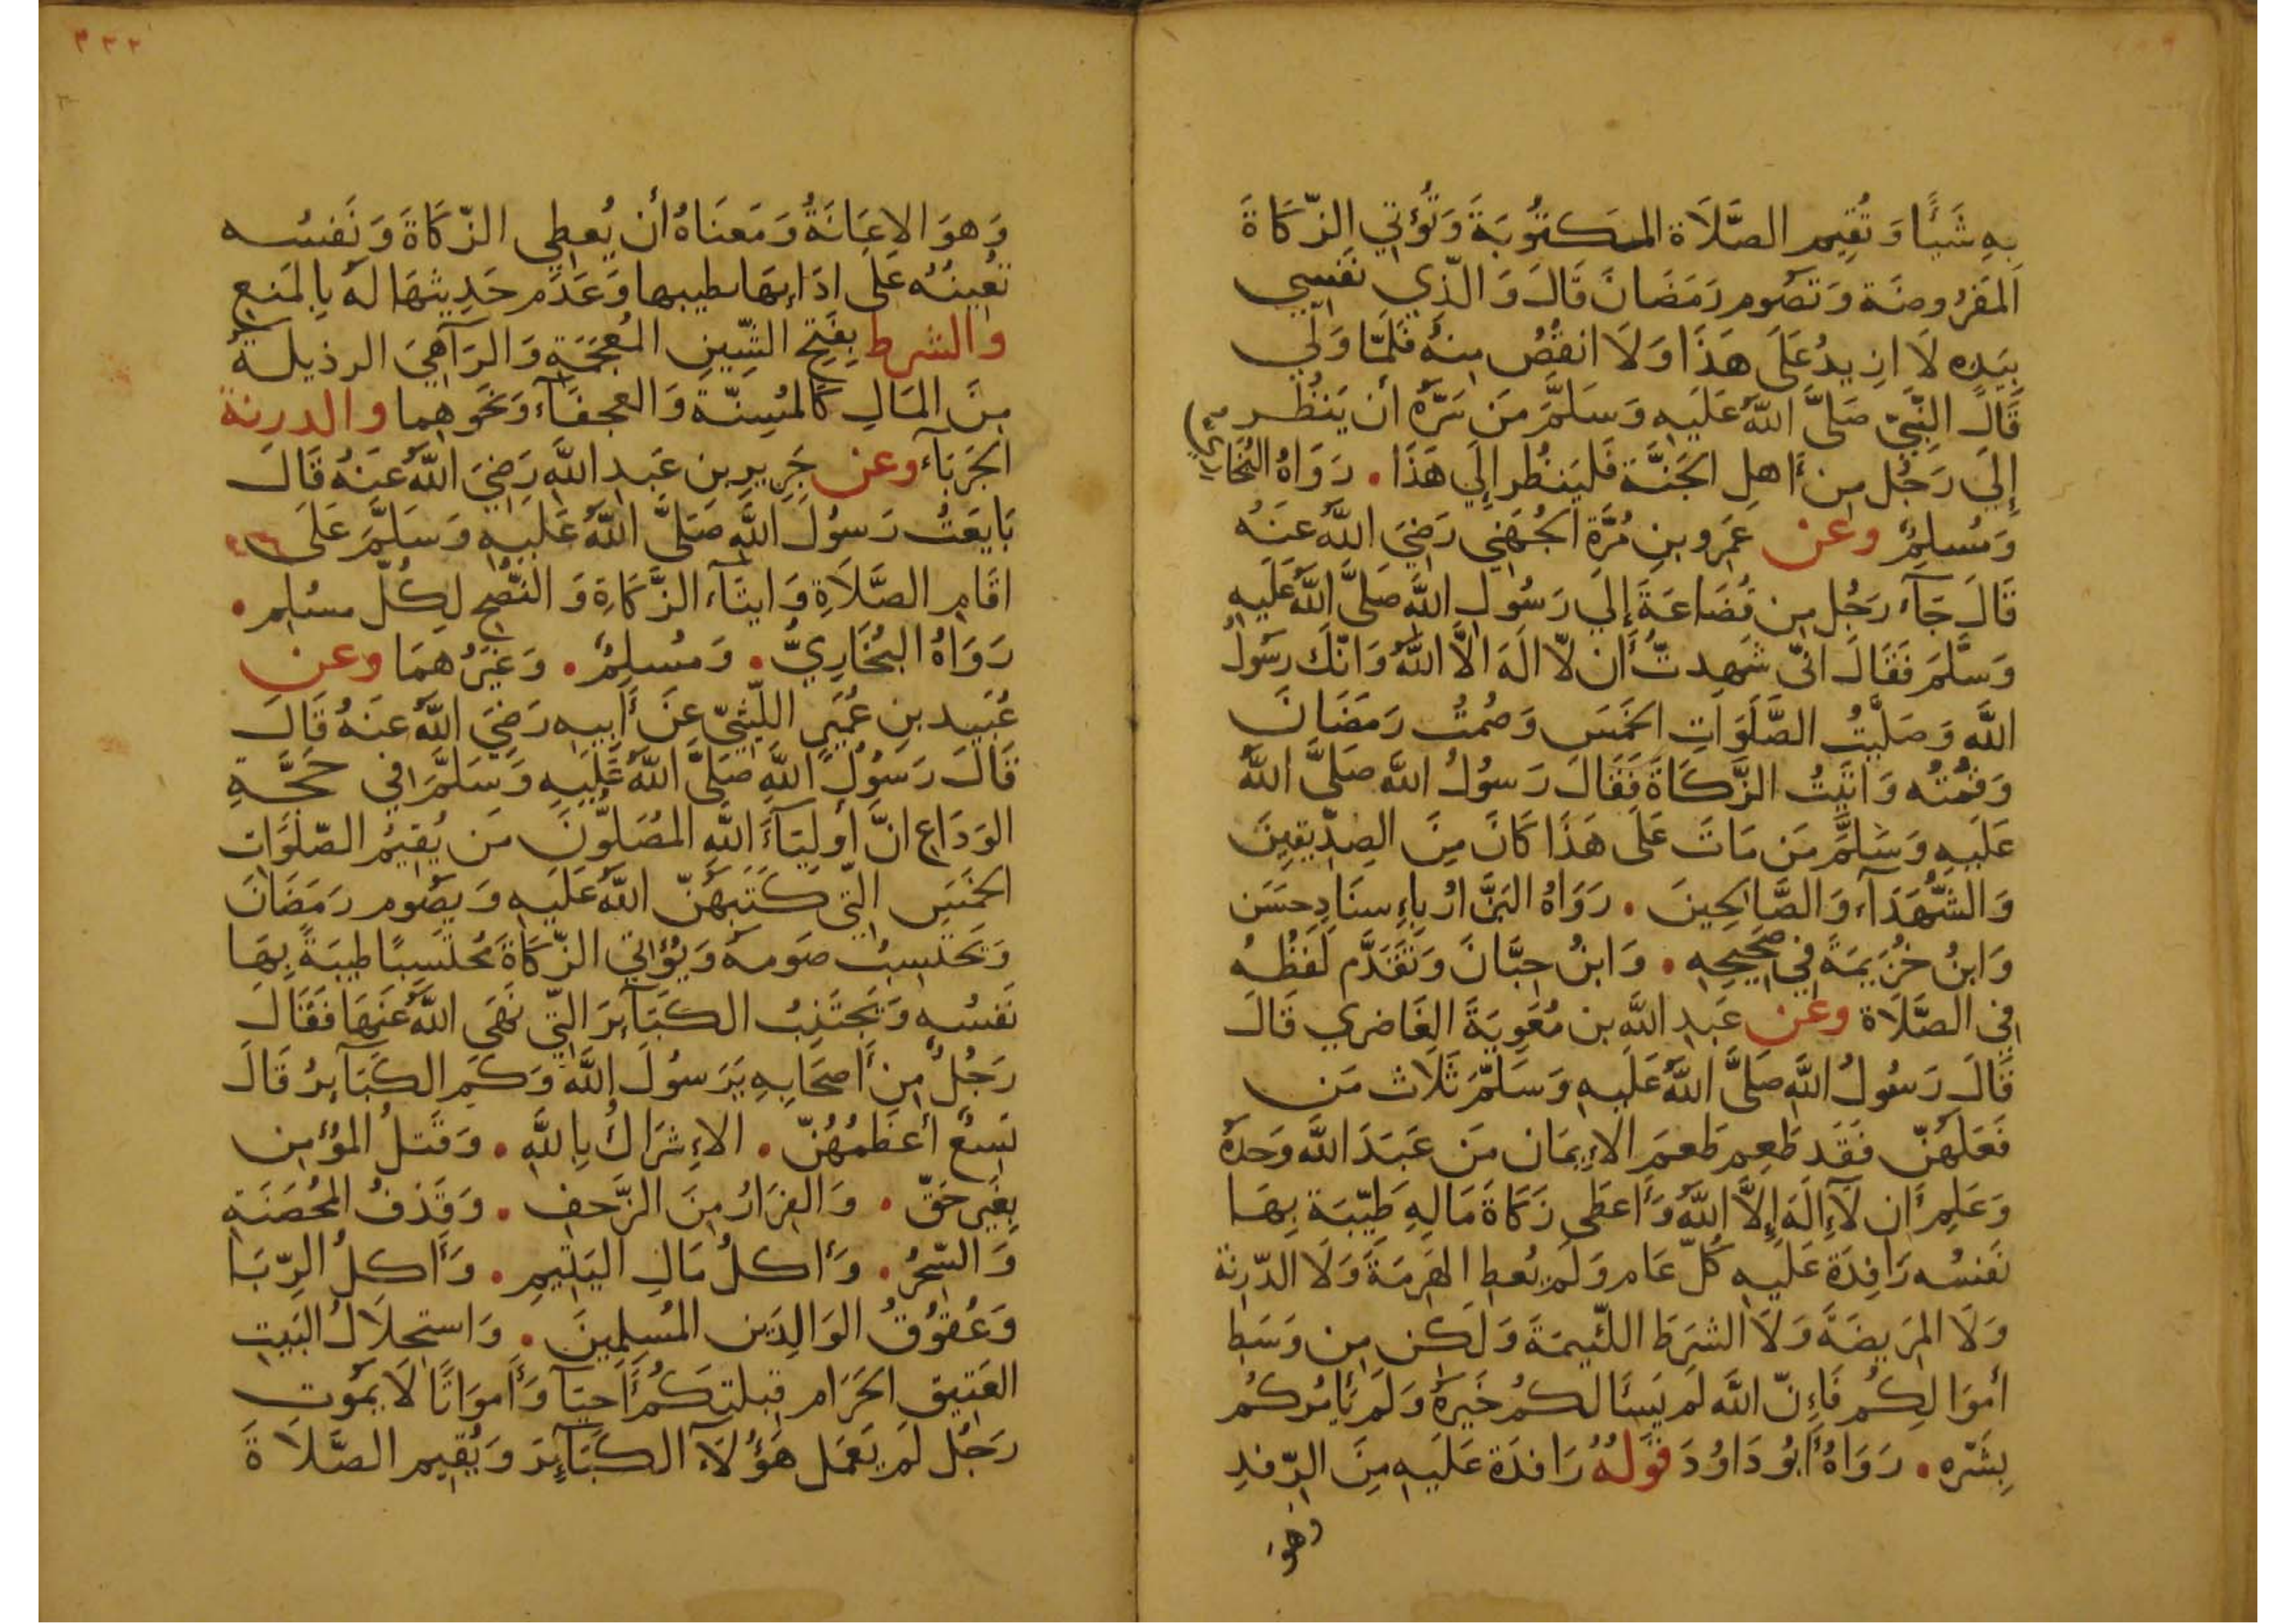 بِهِ شَيْئًا وَتُقِيم الصَّلَاة المَكتُوبَةَ وَتُؤتِي الزّكَاةَ
المَفرُوضَة وَتَصُوم رَمَضَانَ قَالَ وَالَّذِي نَفسِي
بِيَدِه لَا ازِيدُ عَلَى هَذَا وَلَا انقُصُ مِنهُ فَلَمَّا وَلَّي
قَالَ النَّبِيّ صَلَّى اللَّهُ عَلَيهِ وَسَلَّمَ مَن سَرَّهُ أن يَنظُر
إِلَى رَجُل مِن أَهلِ الجَنَّة فَليَنظُر إِلَى هَذَا . رَوَاهُ البُخَاري
وَمُسلِمٌ وعن عَمرِو بنِ مُرَّةِ الجُهَنِي رَضِيَ اللَّهُ عَنهُ
قَالَ جَآءَ رَجُل مِن قُضَاعَةَ إِلَى رَسُولِ اللَّهِ صَلَّى اللَّهُ عَلَيهِ
وَسَلَّمَ فَقَالَ انّي شَهِدتُّ أَن لّا الَهَ الَّا اللَّهُ وَانّكَ رَسُولُ
اللَّهِ وَصَلَّيتُ الصَّلَوَاتِ الخَمسَ وَصُمتُ رَمَضَانَ
وَقُمتُه وَاتَيتُ الزَّكَاةَ فَقَالَ رَسُولُ اللَّهِ صَلَّى اللَّهُ
عَلَيهِ وَسَلَّمَ مَن مَاتَ عَلَى هَذَا كَانَ مِنَ الصِدِّيقِينَ
وَالشُّهَدَآءِ وَالصَّالحِينَ . رَوَاهُ البَزَّارُ بِإِسنَادِ حَسَن
وَابنُ خُزَيمَةَ فِي صَحِيحِهِ . وَابنُ حِبَّانَ وَتَقَدَّم لَفظُهُ
فِي الصَّلَاة وعن عَبدِ اللَّهِ بن مُعَوِيَةَ الغَاضري قَالَ
قَالَ رَسُولُ اللَّهِ صَلَّى اللَّهُ عَلَيهِ وَسَلَّمَ ثَلَاث مَن
فَعَلَهُنّ فَقَد طَعِم طَعمَ الإِيمَان مَن عَبَدَ اللَّه وَحدَهُ
وَعَلِم أَن لَّآ إِلَهَ إِلَّا اللَّهُ وَأَعطَى زَكَاةَ مَالِهِ طَيِّبَة بِهَا
نَفسُه رَافِدَة عَلَيهِ كُلّ عَام وَلَم يُعطِ الهَرِمَةَ وَلَا الدّرِنة
وَلَا المَرِيضَةَ وَلَا الشرَطَ اللّئِيمَة وَلَكن مِن وَسَطِ
أموَالِكُم فَإِنّ اللَّه لَم يَسأَلكُم خَيرَهُ وَلَم يَأمُركُم
بِشَرّه . رَوَاهُ أَبُو دَاوُدَ قَولُهُ رَافِدَة عَلَيهِ مِنَ الرّفدِ
وهو
وَهوَ الاعَانَةُ وَمَعنَاهُ أن يُعطِي الزّكَاةَ وَنَفسُه
تُعِينُهُ عَلَى ادَائهَا بطيبها وَعَدَم حَدِيثهَا لَه بِالمَنعِ
والشرط بِفَتحِ الشّينِ المُعجَمَةِ وَالرّآ هِيَ الرذيلة
مِنَ المَالِ كَالمُسِنّةِ وَالعجفآءِ وَنَحوِهِما والدرنة
الجَربَآء وعن جَرِيرِ بن عَبدِ اللَّهِ رَضِيَ اللَّهُ عَنهُ قَالَ
بَايَعتُ رَسُولَ اللَّهِ صَلَّى اللَّهُ عَلَيهِ وَسَلَّمَ عَلَى
اقَامِ الصَّلَاةِ وَايتَآءِ الزَّكَاةِ وَالنّصحِ لِكُلّ مسُلِم .
رَوَاهُ البُخَارِيُّ . وَمُسلِمٌ . وَغَيرُهُمَا وعن
عُبَيد بنِ عُمَيرٍ اللّيثيّ عَن أَبِيهِ رَضِيَ اللَّهُ عَنهُ قَالَ
قَالَ رَسُولُ اللَّهِ صَلَّى اللَّهُ عَلَيهِ وَسَلَّمَ فِي حَجَّةِ
الوَدَاع انَّ أولِيَآءَ اللَّهِ المُصَلُّونَ مَن يُقِيمُ الصّلَوَاتِ
الخَمسَ الَّتِي كَتَبَهُنّ اللَّهُ عَلَيهِ وَيَصُوم رَمَضَانَ
وَيَحتَسِبُ صَومه وَيُؤتِي الزّكَاةَ مُحتَسِبًا طيبَةً بِهَا
نَفسُه وَيَجتَنِبُ الكَبَآئِرَ الَّتِي نَهَى اللَّهُ عَنهَا فَقَالَ
رَجُلٌ مِن أَصحَابِهِ يَرَسُولَ اللَّهِ وَكَم الكَبَآئِرُ قَالَ
تِسعٌ أَعظَمُهُنّ . الإِشرَاكُ بِاللَّهِ . وَقَتلُ المُؤمِن
بِغَيرِ حَقّ . وَالفِرَارُ مِنَ الزَّحفِ . وَقَذفُ المُحصَنَةِ
وَالسّحرُ . وَأَكلُ مَالِ اليَتِيمِ . وَأَكلُ الرِّبَا
وَعُقُوقُ الوَالِدَينِ المُسلِمِينَ . وَاستِحلَالُ البَيتِ
العَتِيقِ الحَرَام قِبلَتِكُم أَحيَآ وَأَموَاتًا لَا يَمُوت
رَجُل لَم يَعمَل هَؤُلَآ الكَبَآئِرَ وَيُقِيم الصَّلَاةَ